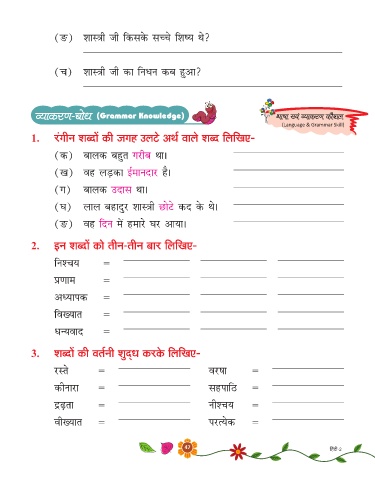 (ङ) शास्त्री जी किसके सच्चे शिष्य थे?
(च) शास्त्री जी का निधन कब हुआ?
व्याकरण-बोध (Grammar Knowledge)
भाषा एवं व्याकरण कौशल
(Language & Grammar Skill)
1. रंगीन शब्दों की जगह उलटे अर्थ वाले शब्द लिखिए-
(क) बालक बहुत गरीब था।
(ख) वह लड़का ईमानदार है।
(ग) बालक उदास था।
(घ) लाल बहादुर शास्त्री छोटे कद के थे।
(ङ) वह दिन में हमारे घर आया।
2. इन शब्दों को तीन-तीन बार लिखिए-
निश्चय =
प्रणाम =
अध्यापक =
विख्यात =
धन्यवाद =
3. शब्दों की वर्तनी शुद्ध करके लिखिए-
रस्ते = वरषा =
कीनारा = सहपाठि =
द्रढ़ता = नीश्चय =
वीख्यात = परत्येक =
47
हिंदी-2